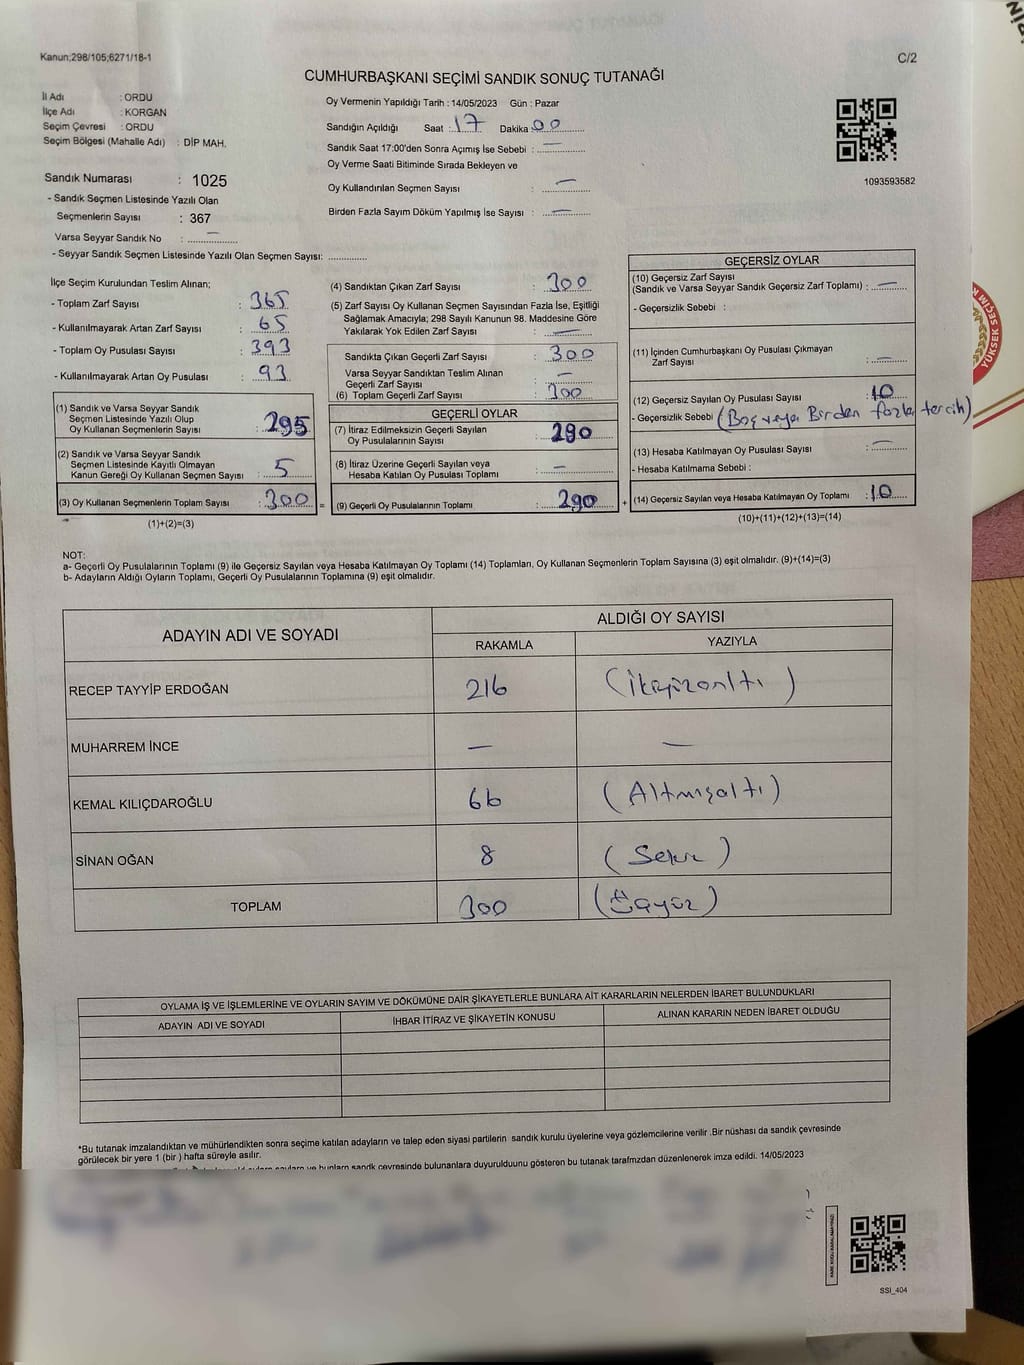 Kanun;298/105;6271/18-1
C/2
CUMHURBAŞKANI SEÇİMİ SANDIK SONUÇ TUTANAĞI
İl Adı : ORDU
İlçe Adı : KORGAN
Seçim Çevresi : ORDU
Seçim Bölgesi (Mahalle Adı) : DİP MAH.
Oy Vermenin Yapıldığı Tarih : 14/05/2023 Gün : Pazar
Sandığın Açıldığı Saat : 17 Dakika 00
Sandık Saat 17:00'den Sonra Açımış İse Sebebi : —
Oy Verme Saati Bitiminde Sırada Bekleyen ve
Oy Kullandırılan Seçmen Sayısı : —
Birden Fazla Sayım Döküm Yapılmış İse Sayısı : —
1093593582
Sandık Numarası : 1025
- Sandık Seçmen Listesinde Yazılı Olan
Seçmenlerin Sayısı : 367
Varsa Seyyar Sandık No : —
- Seyyar Sandık Seçmen Listesinde Yazılı Olan Seçmen Sayısı: ..............
İlçe Seçim Kurulundan Teslim Alınan;
- Toplam Zarf Sayısı : 365
- Kullanılmayarak Artan Zarf Sayısı : 65
- Toplam Oy Pusulası Sayısı : 393
- Kullanılmayarak Artan Oy Pusulası : 93
(1) Sandık ve Varsa Seyyar Sandık
Seçmen Listesinde Yazılı Olup
Oy Kullanan Seçmenlerin Sayısı : 295
(2) Sandık ve Varsa Seyyar Sandık
Seçmen Listesinde Kayıtlı Olmayan
Kanun Gereği Oy Kullanan Seçmen Sayısı : 5
(3) Oy Kullanan Seçmenlerin Toplam Sayısı : 300 =
(1)+(2)=(3)
(4) Sandıktan Çıkan Zarf Sayısı : 300
(5) Zarf Sayısı Oy Kullanan Seçmen Sayısından Fazla İse, Eşitliği
Sağlamak Amacıyla; 298 Sayılı Kanunun 98. Maddesine Göre
Yakılarak Yok Edilen Zarf Sayısı : —
Sandıkta Çıkan Geçerli Zarf Sayısı : 300
Varsa Seyyar Sandıktan Teslim Alınan
Geçerli Zarf Sayısı : —
(6) Toplam Geçerli Zarf Sayısı : 300
GEÇERLİ OYLAR
(7) İtiraz Edilmeksizin Geçerli Sayılan
Oy Pusulalarının Sayısı : 290
(8) İtiraz Üzerine Geçerli Sayılan veya
Hesaba Katılan Oy Pusulası Toplamı : —
(9) Geçerli Oy Pusulalarının Toplamı : 290 +
GEÇERSİZ OYLAR
(10) Geçersiz Zarf Sayısı
(Sandık ve Varsa Seyyar Sandık Geçersiz Zarf Toplamı) : —
- Geçersizlik Sebebi :
(11) İçinden Cumhurbaşkanı Oy Pusulası Çıkmayan
Zarf Sayısı : —
(12) Geçersiz Sayılan Oy Pusulası Sayısı : 10
- Geçersizlik Sebebi (Boş veya Birden fazla tercih)
(13) Hesaba Katılmayan Oy Pusulası Sayısı : —
- Hesaba Katılmama Sebebi :
(14) Geçersiz Sayılan veya Hesaba Katılmayan Oy Toplamı : 10
(10)+(11)+(12)+(13)=(14)
NOT:
a- Geçerli Oy Pusulalarının Toplamı (9) ile Geçersiz Sayılan veya Hesaba Katılmayan Oy Toplamı (14) Toplamları, Oy Kullanan Seçmenlerin Toplam Sayısına (3) eşit olmalıdır. (9)+(14)=(3)
b- Adayların Aldığı Oyların Toplamı, Geçerli Oy Pusulalarının Toplamına (9) eşit olmalıdır.
ADAYIN ADI VE SOYADI
ALDIĞI OY SAYISI
RAKAMLA YAZIYLA
RECEP TAYYİP ERDOĞAN 216 (ikiyüzonaltı)
MUHARREM İNCE — —
KEMAL KILIÇDAROĞLU 66 (Altmışaltı)
SİNAN OĞAN 8 (Sekiz)
TOPLAM 300 (Üçyüz)
OYLAMA İŞ VE İŞLEMLERİNE VE OYLARIN SAYIM VE DÖKÜMÜNE DAİR ŞİKAYETLERLE BUNLARA AİT KARARLARIN NELERDEN İBARET BULUNDUKLARI
ADAYIN ADI VE SOYADI İHBAR İTİRAZ VE ŞİKAYETİN KONUSU ALINAN KARARIN NEDEN İBARET OLDUĞU
*Bu tutanak imzalandıktan ve mühürlendikten sonra seçime katılan adayların ve talep eden siyasi partilerin sandık kurulu üyelerine veya gözlemcilerine verilir .Bir nüshası da sandık çevresinde
görülecek bir yere 1 (bir ) hafta süreyle asılır.
ve bunların sandık çevresinde bulunanlara duyurulduunu gösteren bu tutanak tarafımzdan düzenlenerek imza edildi. 14/05/2023
SSI_404
YÜKSEK SEÇİM